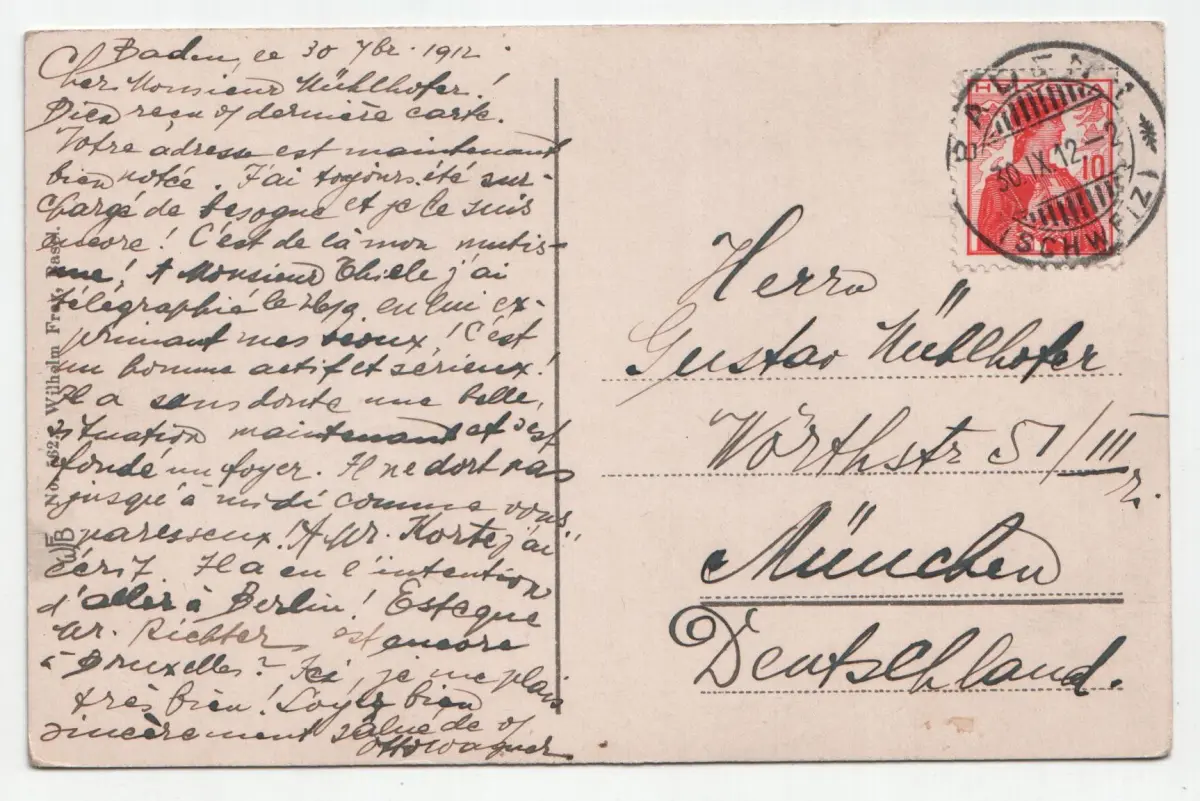 Baden, ce 30 7br. 1912.
Cher Monsieur Mühlhofer!
Bien reçu dernière carte.
Votre adresse est maintenant
bien notée. J'ai toujours été sur-
chargé de besogne et je le suis
encore! C'est de là mon mutis-
me! A Monsieur Thiele j'ai
télégraphié le en lui ex-
primant mes voeux! C'est
un homme actif et sérieux!
Il a sans doute une belle
situation maintenant et s'est
fondé un foyer. Il ne dort pas
jusqu'à midi comme vous
paresseux! A Mr. Korte j'ai
écrit. Il a eu l'intention
d'aller à Berlin! Est-ce que
Mr. Richter est encore
à Bruxelles? Ici, je me plais
très bien! Soyez bien
sincèrement salué de
Otto Wagner
Wilhelm Frey, Basel.
WFB
Herrn
Gustav Mühlhofer
Wörthstr 51/III
r.
München
Deutschland.
HELVETIA
10
BADEN
30.IX.12-2
(SCHWEIZ)